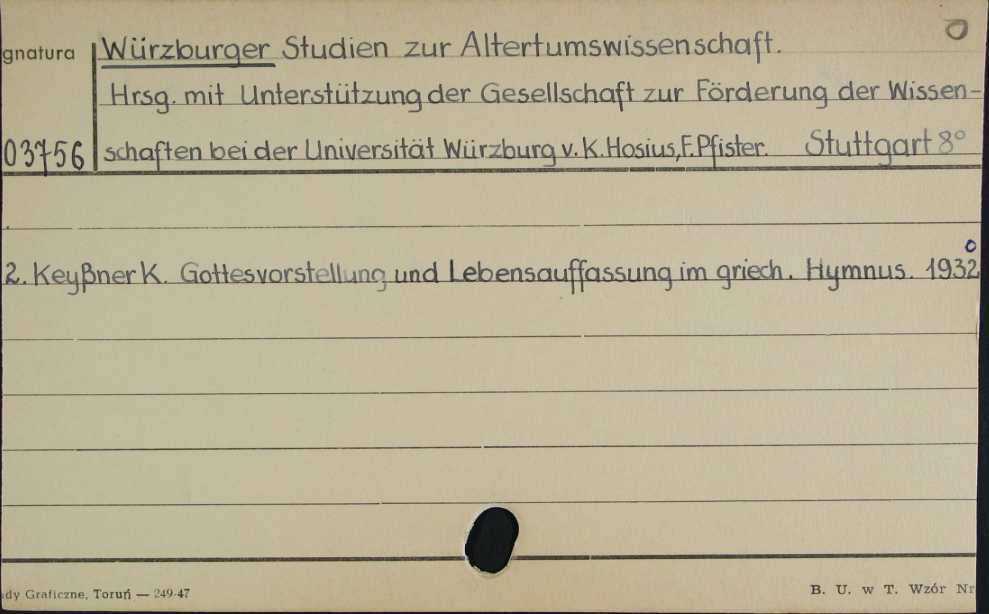 gnatura Würzburger Studien zur Altertumswissenschaft. O
Hrsg. mit Unterstützung der Gesellschaft zur Förderung der Wissen-
03756 schaften bei der Universität Würzburg v. K. Hosius, F. Pfister. Stuttgart 8°
2. Keyßner K. Gottesvorstellung und Lebensauffassung im griech. Hymnus. 1932
ady Graficzne, Toruń — 249-47 B. U. w T. Wzór Nr